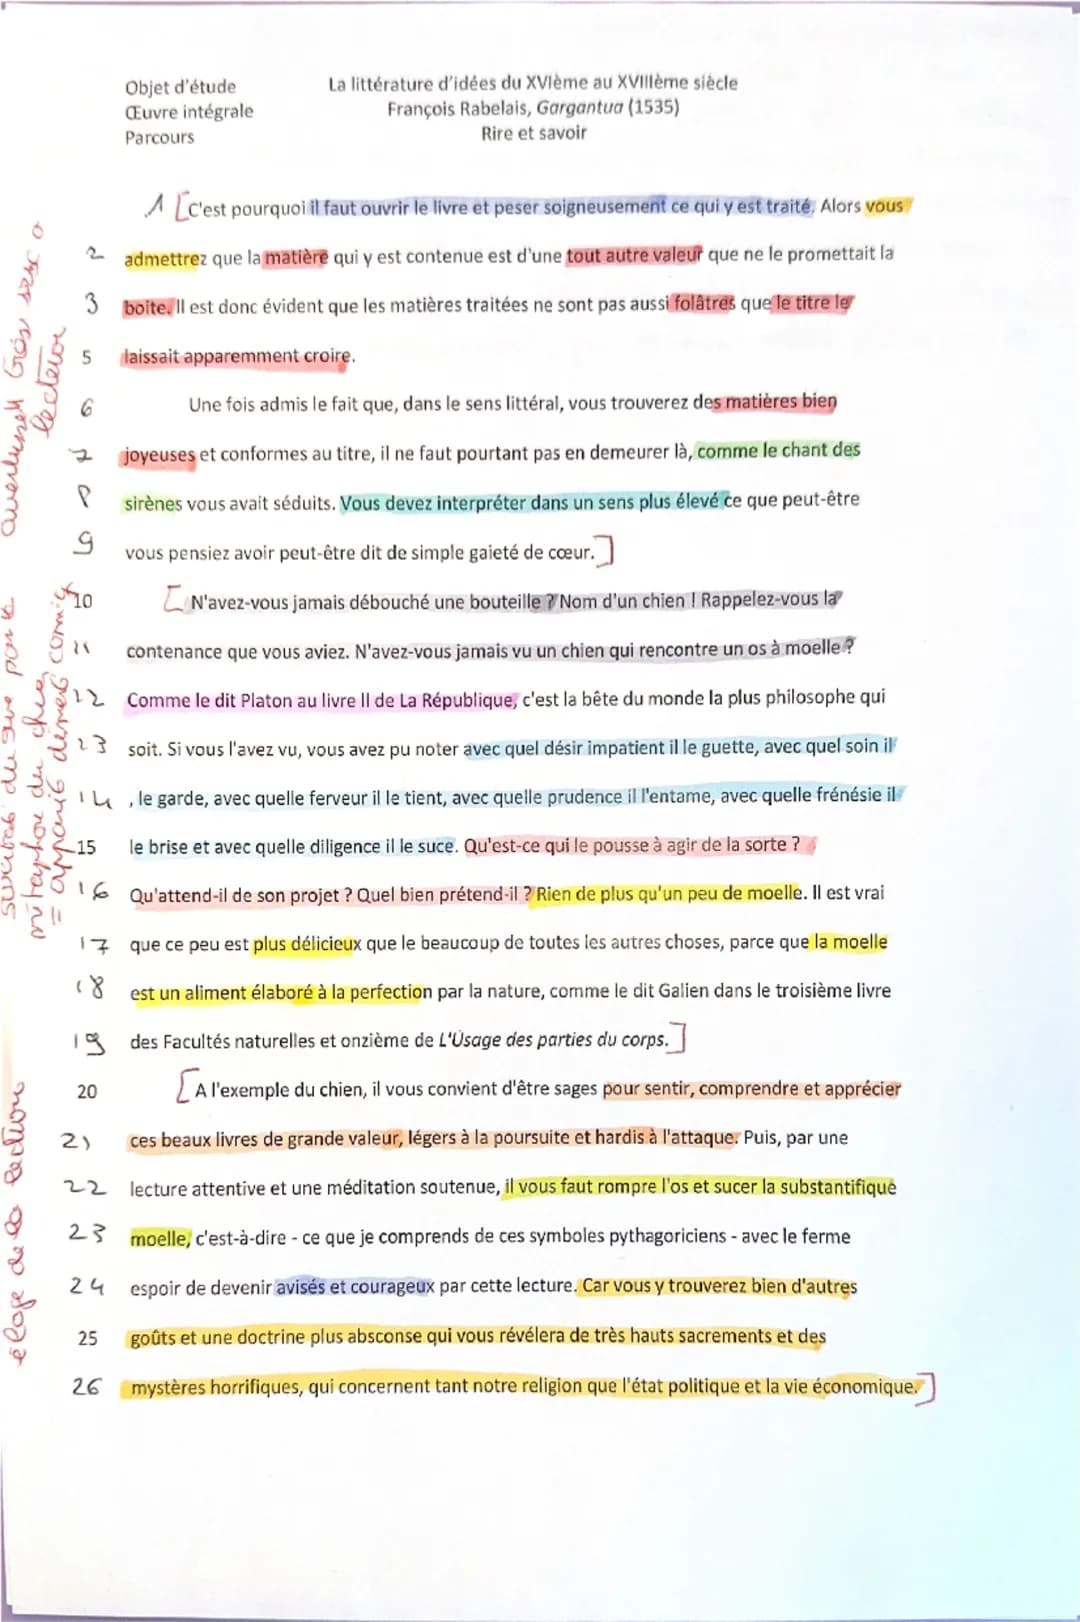 Objet d'étude
La littérature d'idées du XVIème au XVIIIème siècle
Œuvre intégrale
François Rabelais, Gargantua (1535)
Parcours
Rire et savoir
1 [C'est pourquoi il faut ouvrir le livre et peser soigneusement ce qui y est traité. Alors vous
2 admettrez que la matière qui y est contenue est d'une tout autre valeur que ne le promettait la
3 boite. Il est donc évident que les matières traitées ne sont pas aussi folâtres que le titre le
5 laissait apparemment croire.
6 Une fois admis le fait que, dans le sens littéral, vous trouverez des matières bien
7 joyeuses et conformes au titre, il ne faut pourtant pas en demeurer là, comme le chant des
8 sirènes vous avait séduits. Vous devez interpréter dans un sens plus élevé ce que peut-être
9 vous pensiez avoir peut-être dit de simple gaieté de cœur.]
10 [N'avez-vous jamais débouché une bouteille ? Nom d'un chien ! Rappelez-vous la
11 contenance que vous aviez. N'avez-vous jamais vu un chien qui rencontre un os à moelle ?
12 Comme le dit Platon au livre II de La République, c'est la bête du monde la plus philosophe qui
13 soit. Si vous l'avez vu, vous avez pu noter avec quel désir impatient il le guette, avec quel soin il
14 , le garde, avec quelle ferveur il le tient, avec quelle prudence il l'entame, avec quelle frénésie il
15 le brise et avec quelle diligence il le suce. Qu'est-ce qui le pousse à agir de la sorte ?
16 Qu'attend-il de son projet ? Quel bien prétend-il ? Rien de plus qu'un peu de moelle. Il est vrai
17 que ce peu est plus délicieux que le beaucoup de toutes les autres choses, parce que la moelle
18 est un aliment élaboré à la perfection par la nature, comme le dit Galien dans le troisième livre
19 des Facultés naturelles et onzième de L'Usage des parties du corps.]
20 [A l'exemple du chien, il vous convient d'être sages pour sentir, comprendre et apprécier
21 ces beaux livres de grande valeur, légers à la poursuite et hardis à l'attaque. Puis, par une
22 lecture attentive et une méditation soutenue, il vous faut rompre l'os et sucer la substantifique
23 moelle, c'est-à-dire - ce que je comprends de ces symboles pythagoriciens - avec le ferme
24 espoir de devenir avisés et courageux par cette lecture. Car vous y trouverez bien d'autres
25 goûts et une doctrine plus absconse qui vous révélera de très hauts sacrements et des
26 mystères horrifiques, qui concernent tant notre religion que l'état politique et la vie économique.]
lecteur
métaphore du chien
éloge de la lecture